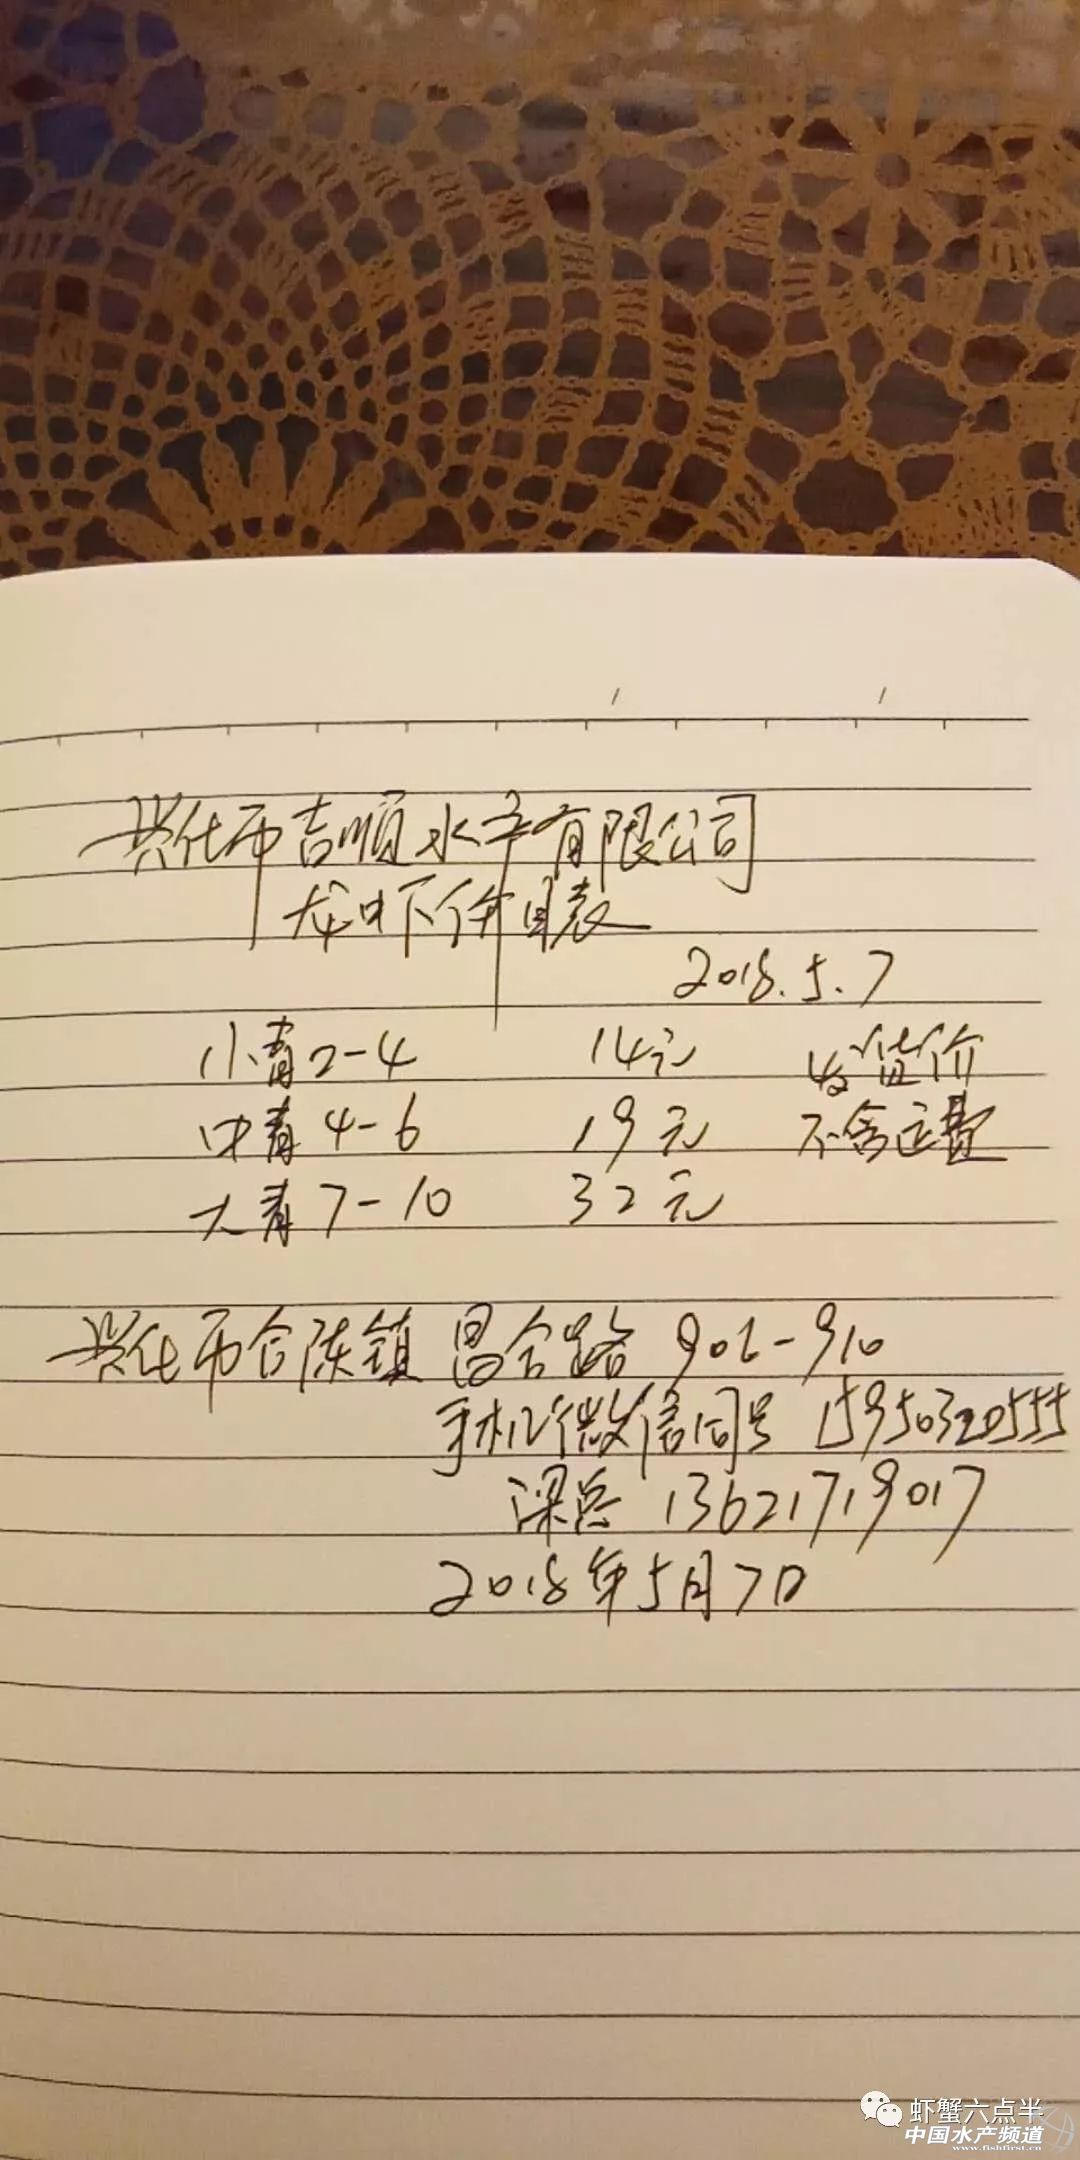 兴化市吉顺水产有限公司
龙虾价目表
2018.5.7
小青2-4 14元 收货价
中青4-6 19元 不含运费
大青7-10 32元
兴化市合陈镇昌合路 906-910
手机微信同号 15950320555
梁兵 13621719017
2018年5月7日
虾蟹六点半
中国水产频道
www.fishfirst.cn